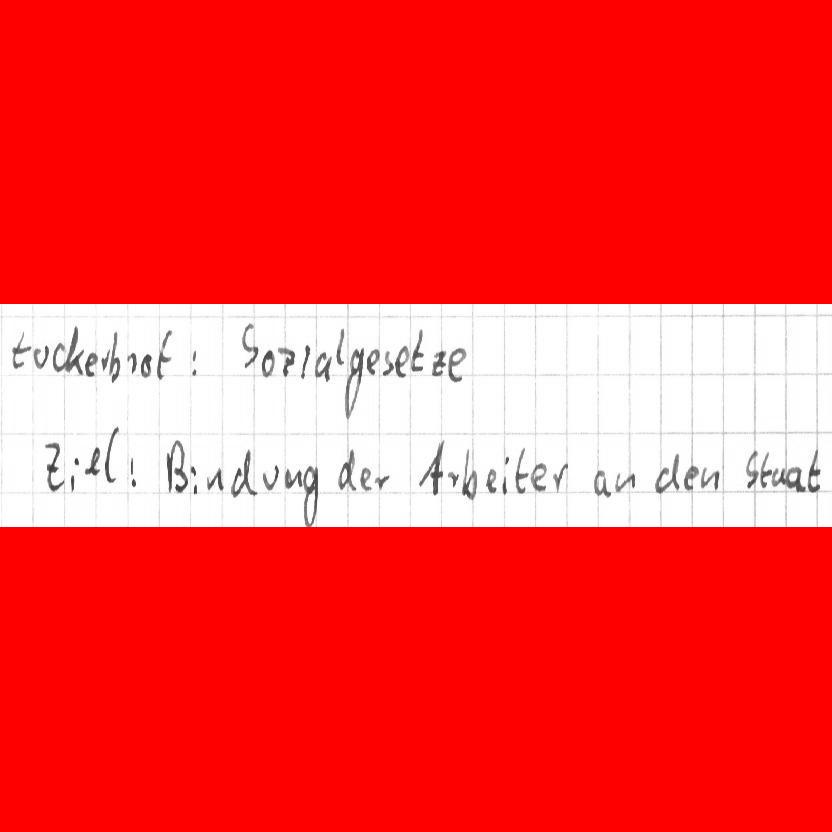 Zuckerbrot: Sozialgesetze
Ziel: Bindung der Arbeiter an den Staat